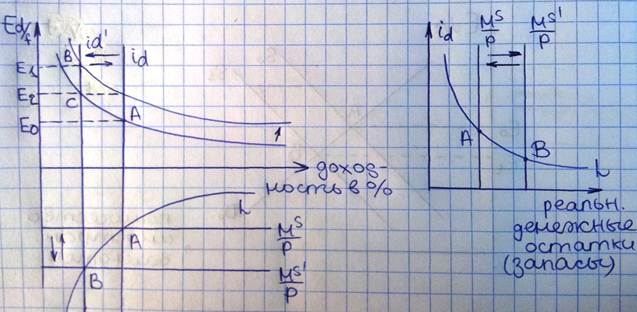 Ed/f
id'
id
B
E1
E2
C
E0
A
1
доход-
ность в %
L
A
M^S/P
B
M^S'/P
id
M^S/P
M^S'/P
A
B
L
реальн.
денежные
остатки
(запасы)